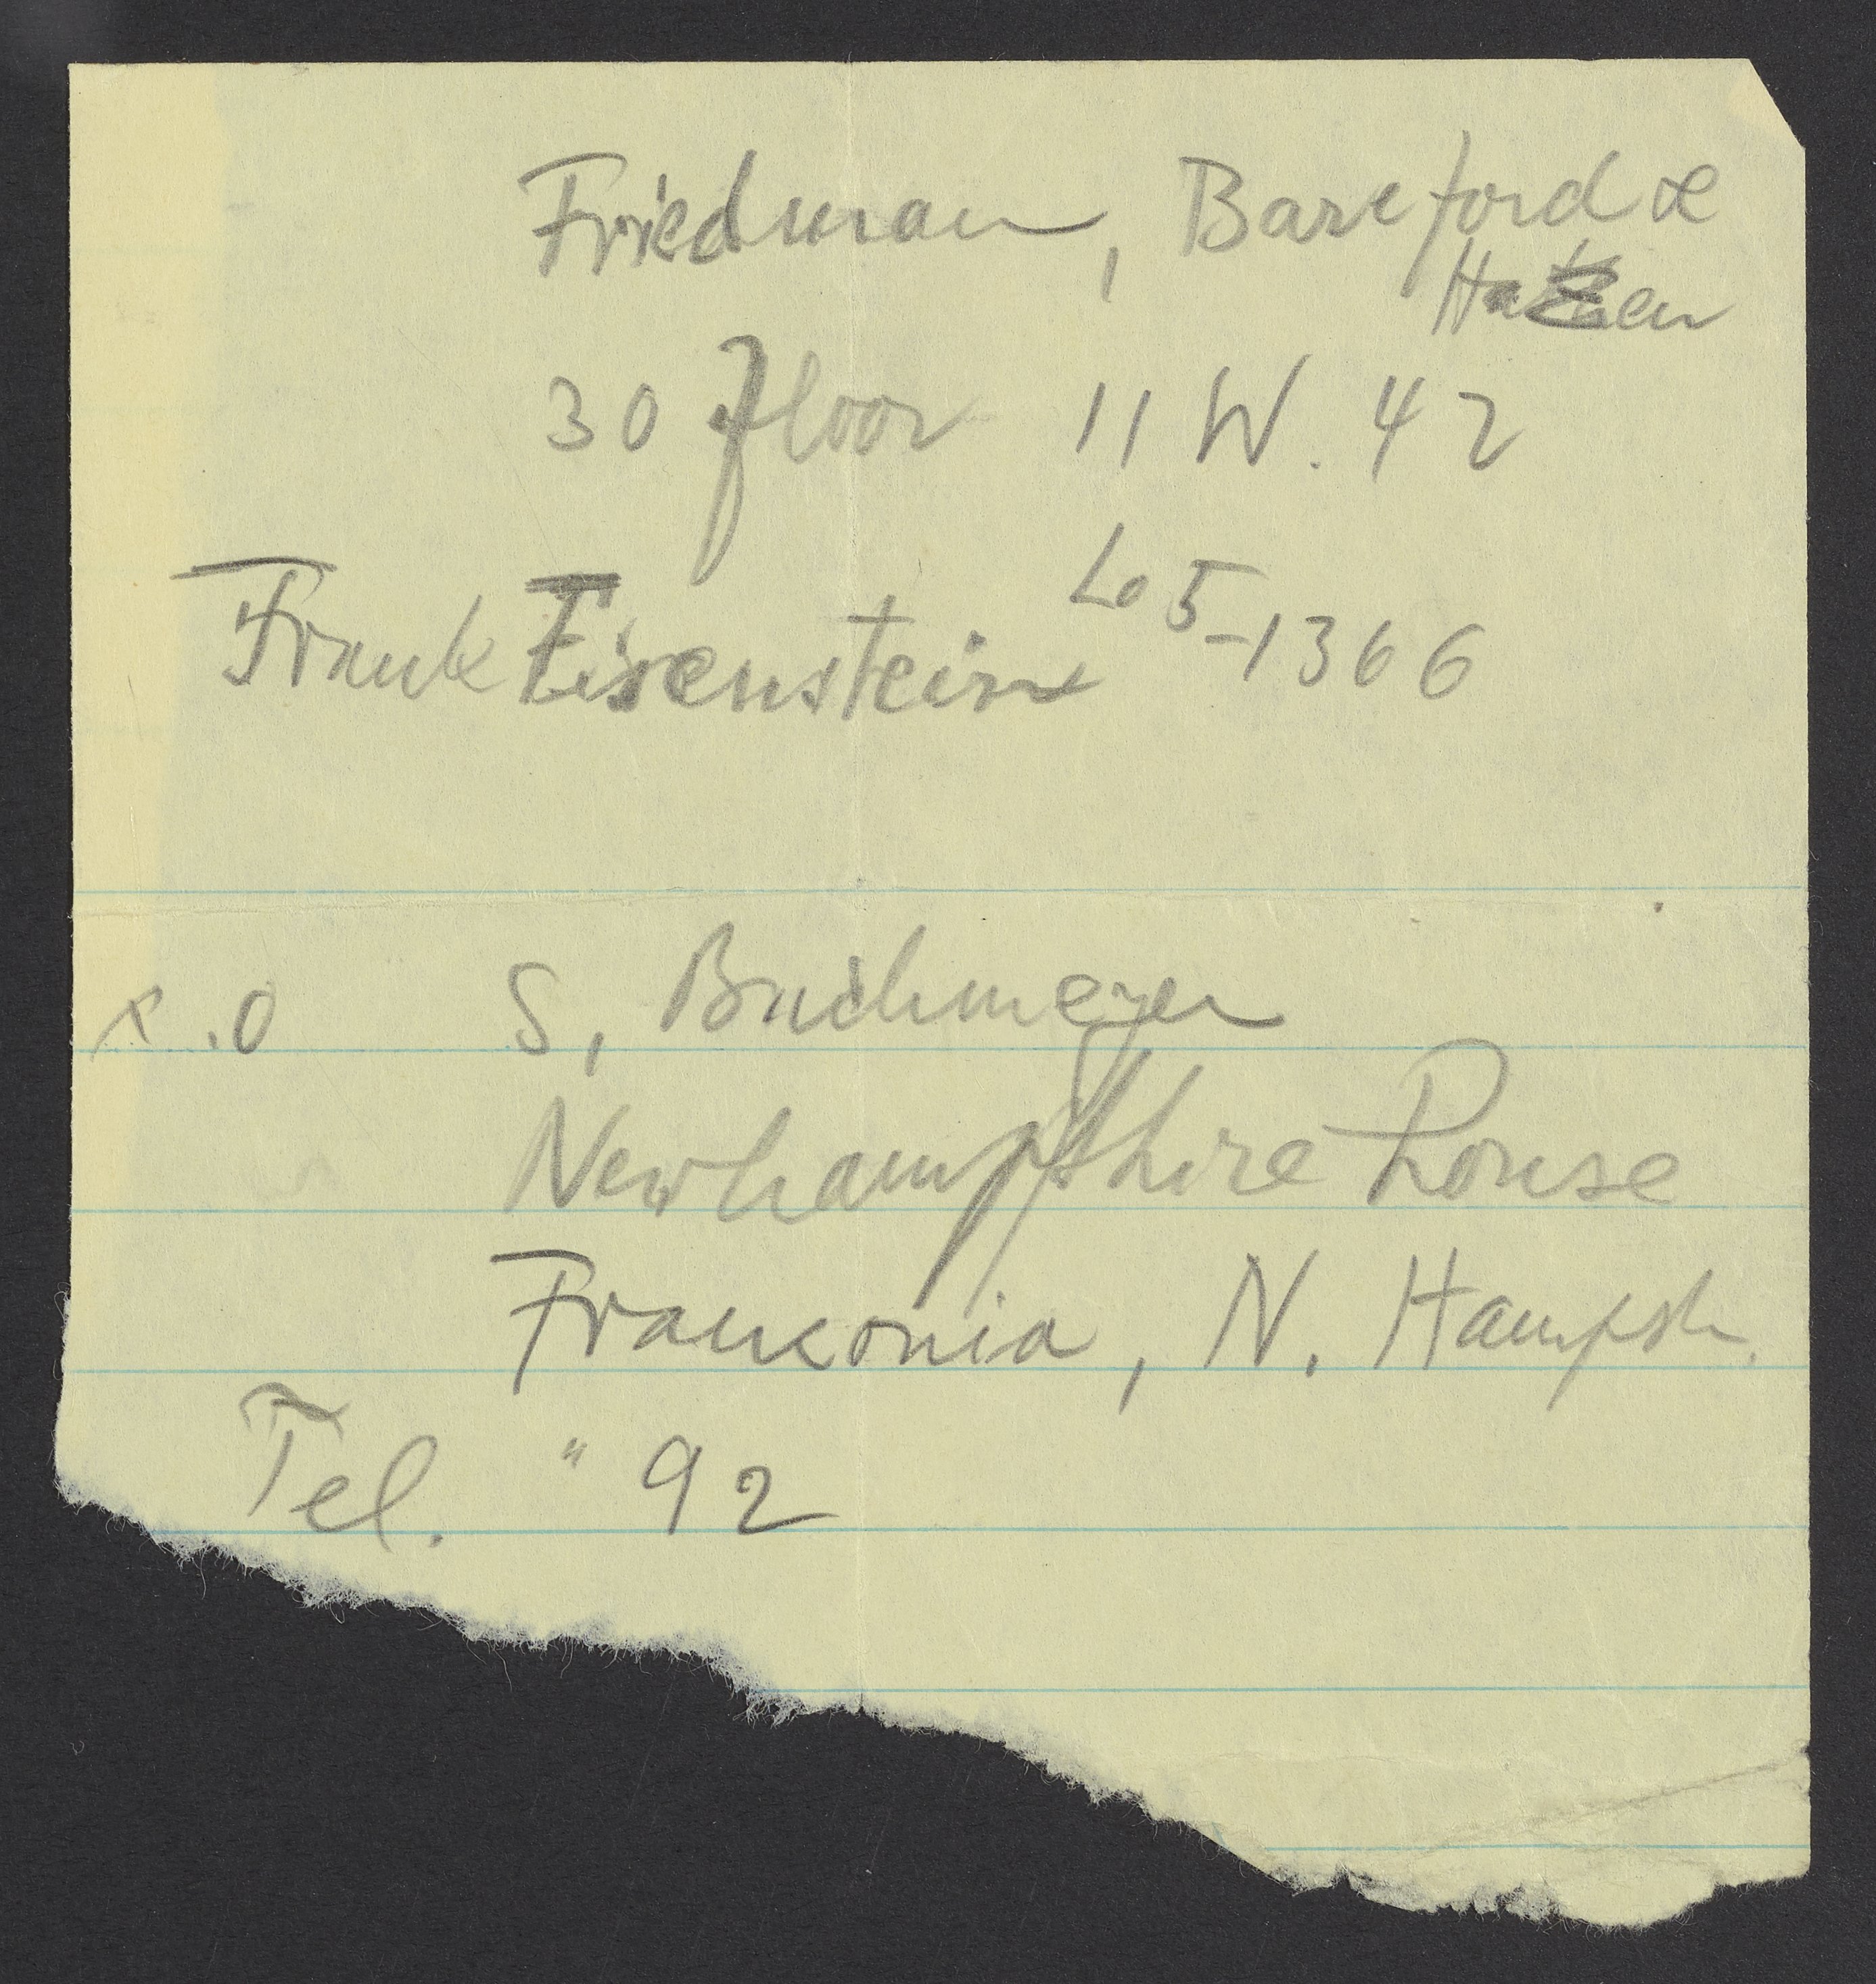 Friedman, Bareford &
Hazen
30 floor 11 W. 42
Lo 5-1366
Frank Eisenstein
c.o S. Bachmeyer
Newhampshire House
Franconia, N. Hampsh.
Tel. " 92